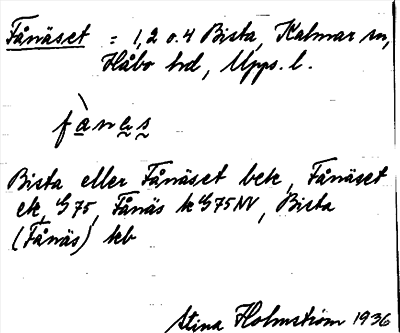 Fånäset = 1,2 o. 4 Bista, Kalmar sn,
Håbo hd, Upps. l.
fànes
Bista eller Fånäset bek, Fånäset
ek, G 75, Fånäs k G 75 NV, Bista
(Fånäs) kb
Stina Holmström 1936